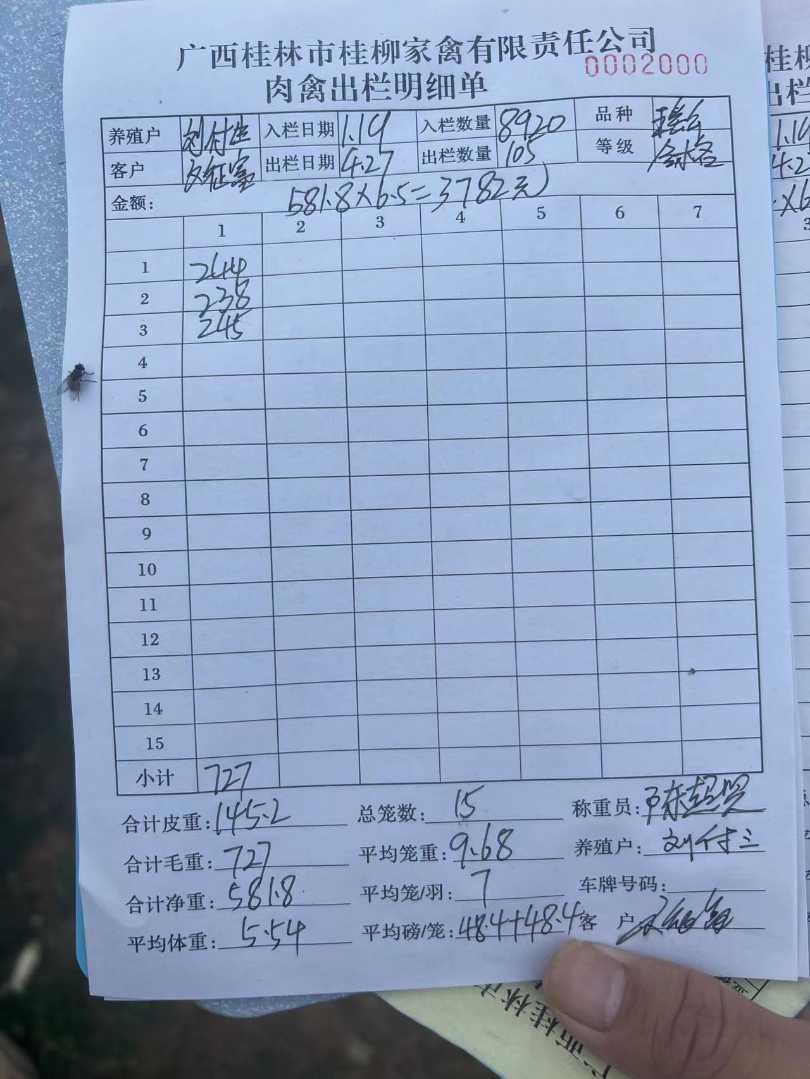 广西桂林市桂柳家禽有限责任公司
肉禽出栏明细单 0002000
养殖户 刘付生 入栏日期 1.19 入栏数量 8920 品种
客户 出栏日期 4.27 出栏数量 105 等级
金额: 581.8×6.5=3782元
1 2 3 4 5 6 7
1 244
2 238
3 245
4
5
6
7
8
9
10
11
12
13
14
15
小计 727
合计皮重: 145.2 总笼数: 15 称重员:
合计毛重: 727 平均笼重: 9.68 养殖户: 刘付三
合计净重: 581.8 平均笼/羽: 7 车牌号码:
平均体重: 5.54 平均磅/笼: 48.4+48.4 客 户